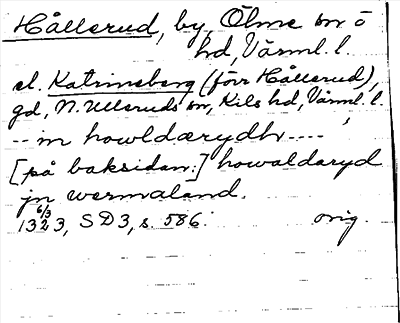 Hållerud, by, Ölme sn o
hd, Värml. l.
el. Katrineberg (förr Hållerud),
gd, N. Ulleruds sn, Kils hd, Värml. l.
-- in howldærydh ----
[på baksidan:] howaldaryd
jn wermaland.
13 6/3 23, SD3, s. 586. orig.